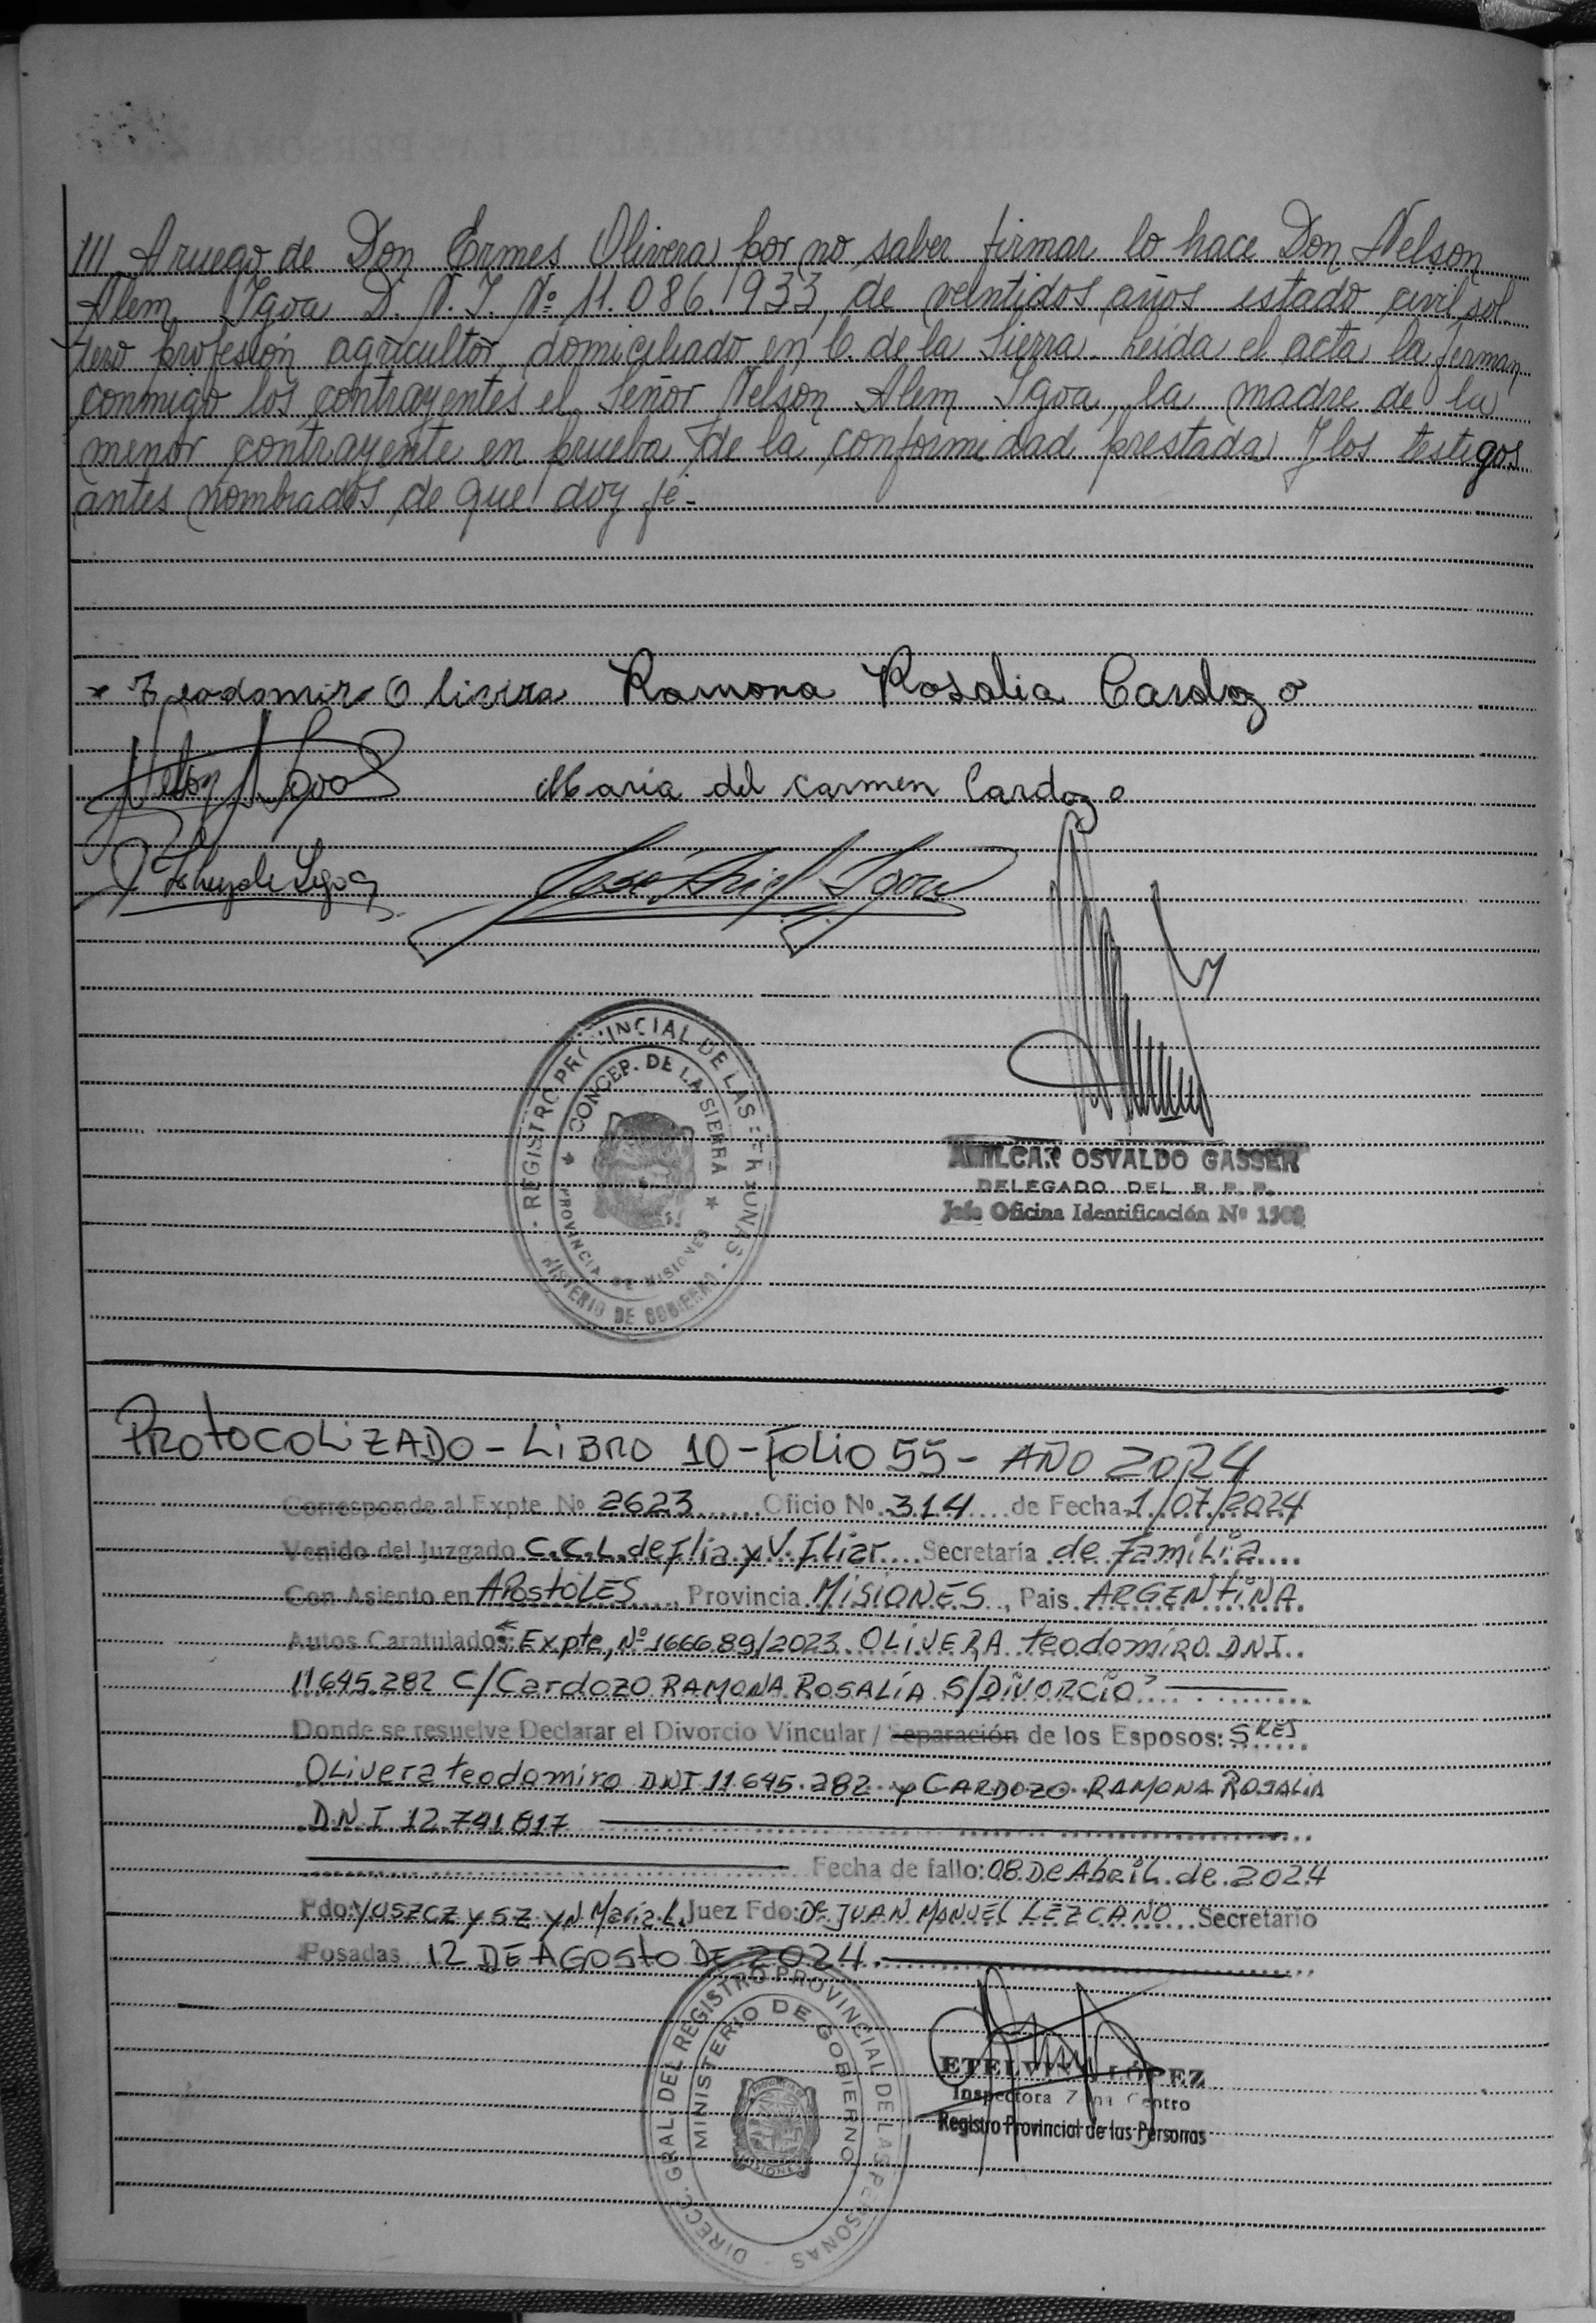 III A ruego de Don Ermes Olivera por no saber firmar lo hace Don Nelson
Alem Igoa D. N. I. Nº 11.086.933, de veintidos años estado civil sol
tero profesión agricultor domiciliado en C. de la Sierra. Leida el acta la firman
conmigo los contrayentes el Señor Nelson Alem Igoa la madre de la
menor contrayente en prueba de la conformidad prestada y los testigos
antes nombrados de que doy fé-
Teodomiro Olivera Ramona Rosalia Cardozo
Nelson A. Igoa
Maria del Carmen Cardozo
Igoa
José Igoa
REGISTRO PROVINCIAL DE LAS PERSONAS
CONCEP. DE LA SIERRA
PROVINCIA DE MISIONES
MINISTERIO DE GOBIERNO
AMILCAR OSVALDO GASSER
DELEGADO DEL R. P. P.
Jefe Oficina Identificación Nº
PROTOCOLIZADO - LIBRO 10 - FOLIO 55 - AÑO 2024
Corresponde al Expte. Nº 2623 Oficio Nº 314 de Fecha 1/07/2024
Venido del Juzgado C.C.L. de Flia y V. Fliar Secretaria de Familia
Con Asiento en APOSTOLES, Provincia MISIONES, Pais ARGENTINA
Autos Caratulados: "Expte, Nº 166689/2023 OLIVERA teodomiro DNI
11645.282 C/Cardozo RAMONA ROSALÍA S/DIVORCIO"
Donde se resuelve Declarar el Divorcio Vincular / Separación de los Esposos: SRES
OLivera teodomiro DNI 11645.282 y CARDOZO RAMONA ROSALIA
D.N.I 12.741817
Fecha de fallo: 08 De Abril de 2024
Fdo: Maria L. Juez Fdo: Dr JUAN MANUEL LEZCANO Secretario
Posadas 12 DE AGOSTO DE 2024.
DIRECC. GRAL. DEL REGISTRO PROVINCIAL DE LAS PERSONAS
MINISTERIO DE GOBIERNO
MISIONES
ETELVINA LÓPEZ
Inspectora Zona Centro
Registro Provincial de las Personas